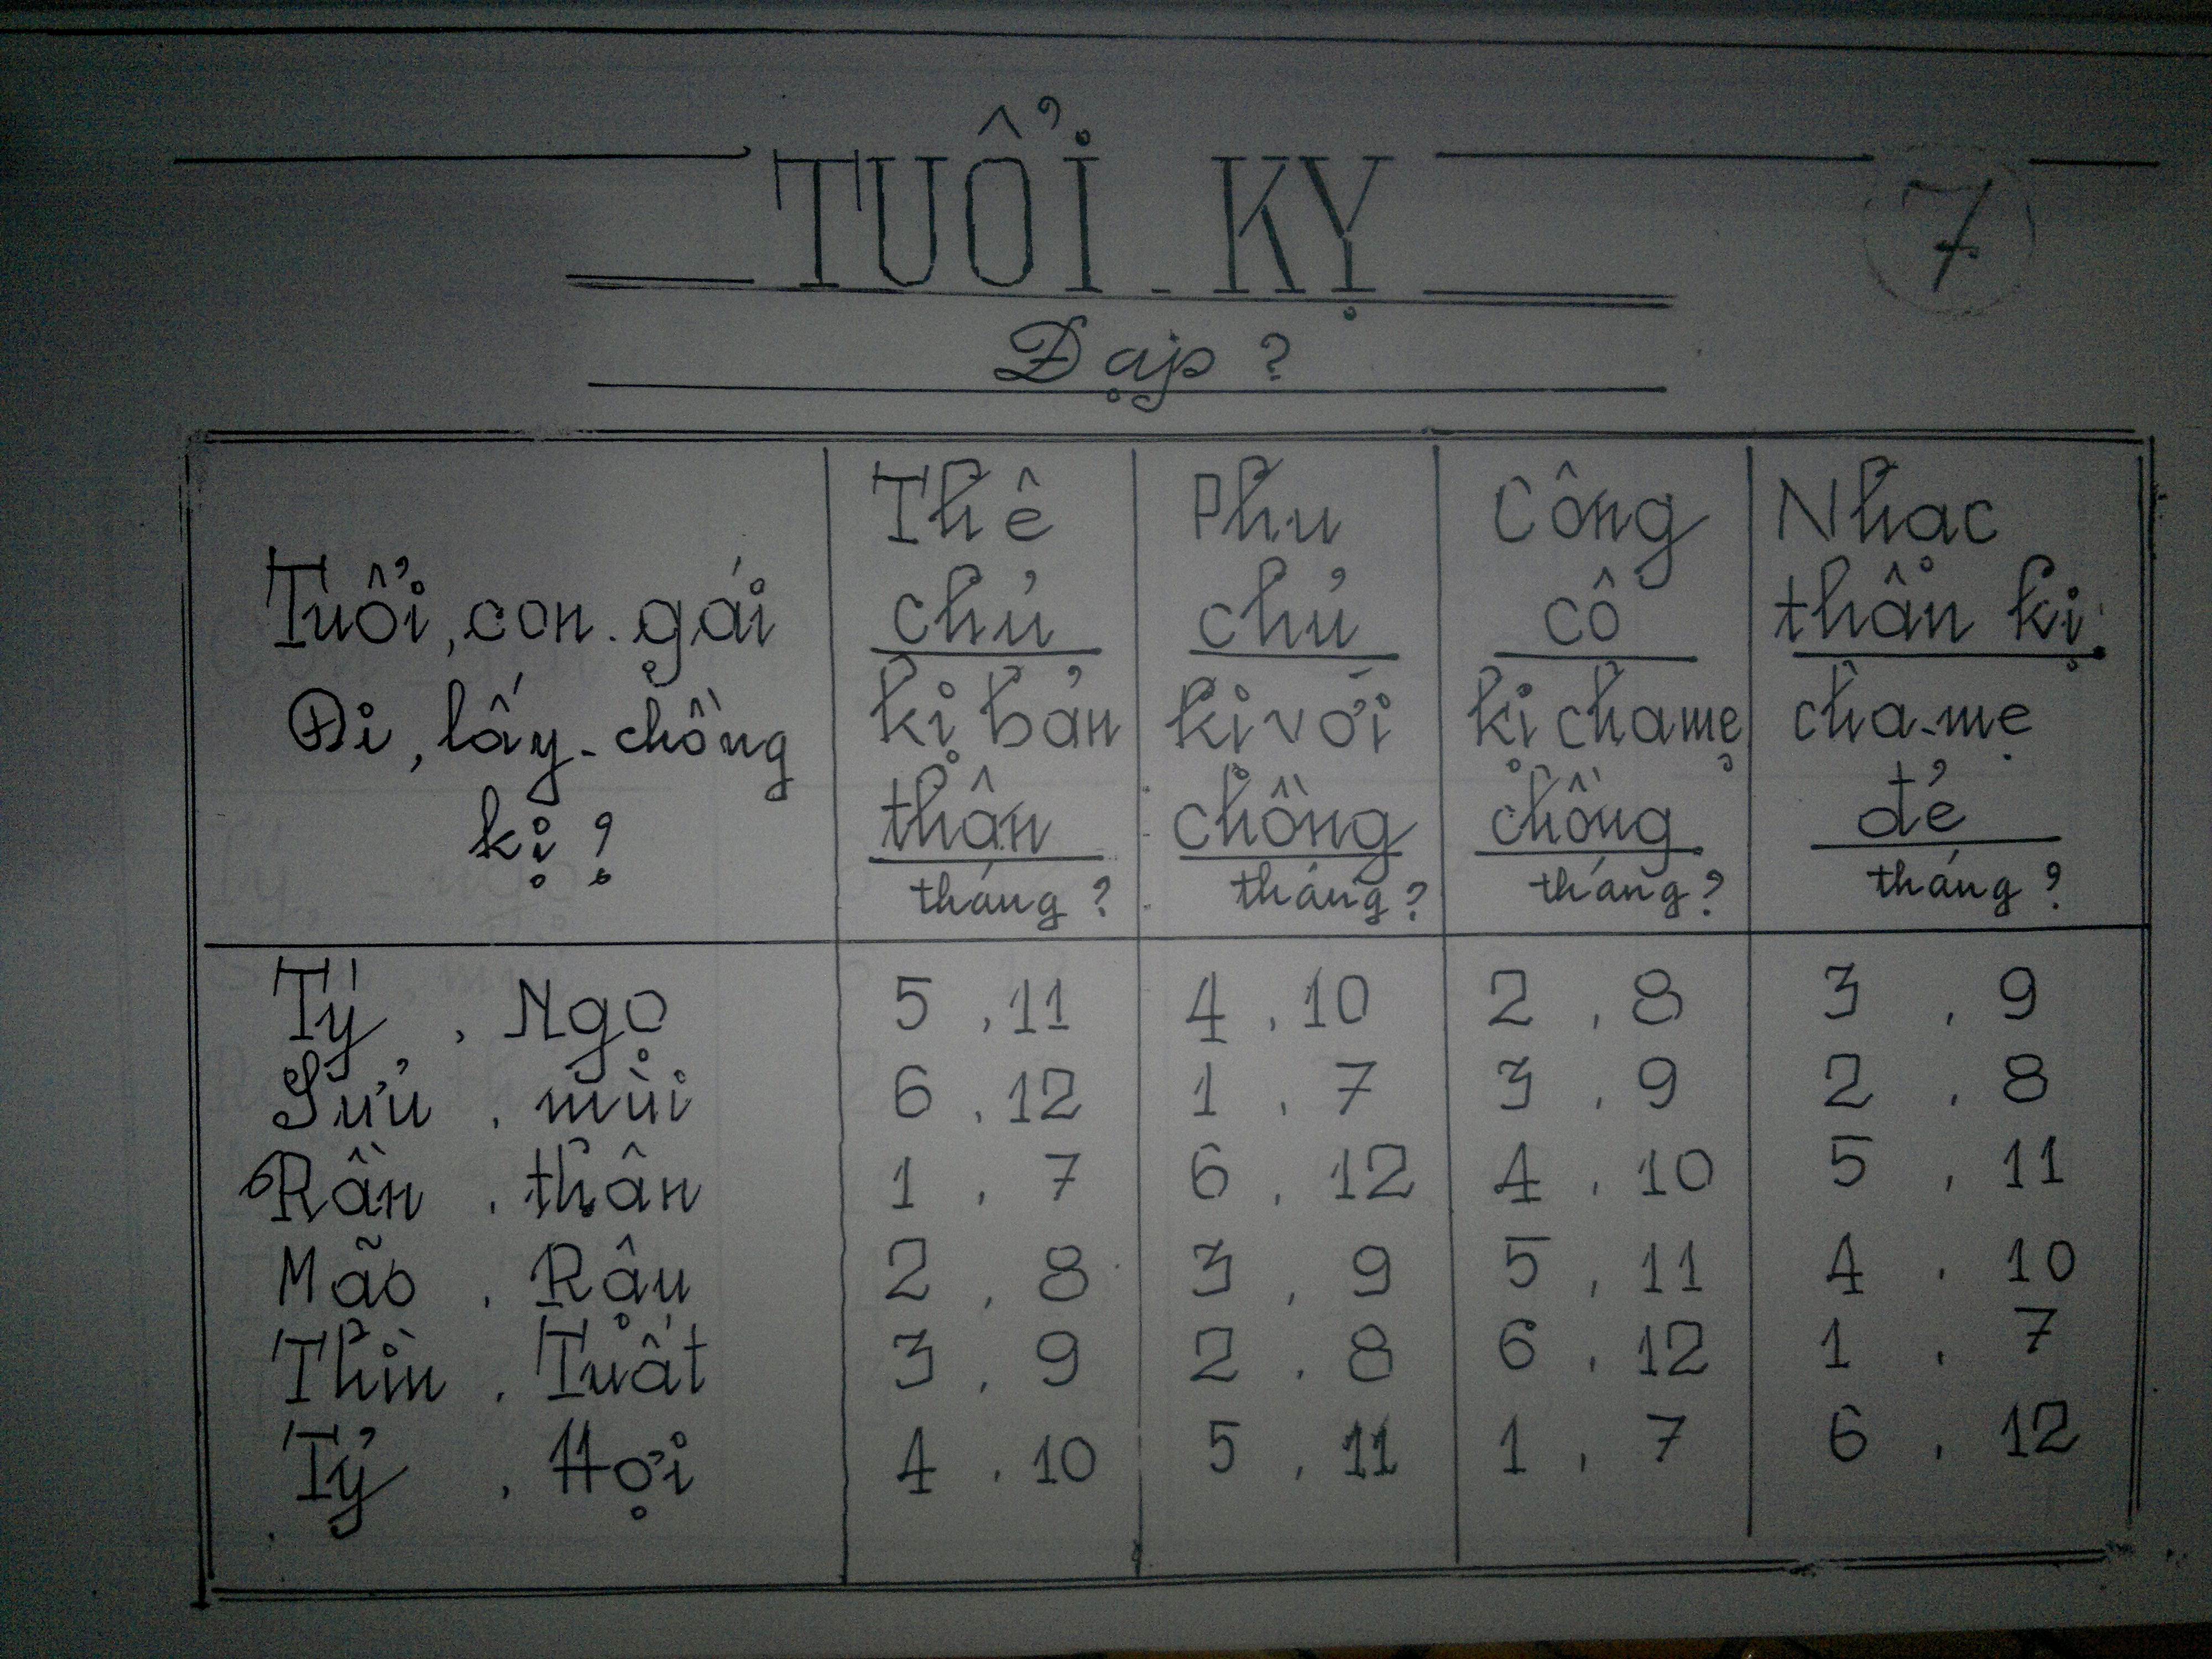 TUỔI - KỴ
7
Đạp ?
Tuổi, con. gái
Đi, lấy - chồng
kị ?
Thê
chủ
kị bản
thân
tháng ?
Phu
chủ
kị với
chồng
tháng ?
Công
cô
kị cha mẹ
chồng
tháng ?
Nhac
thân kị
cha - mẹ
đẻ
tháng ?
Tý , Ngọ 5 , 11 4 , 10 2 , 8 3 , 9
Sửu , mùi 6 , 12 1 , 7 3 , 9 2 , 8
Rần , thân 1 , 7 6 , 12 4 , 10 5 , 11
Mão , Rậu 2 , 8 3 , 9 5 , 11 4 , 10
Thìn , Tuất 3 , 9 2 , 8 6 , 12 1 , 7
Tỷ , Hợi 4 , 10 5 , 11 1 , 7 6 , 12